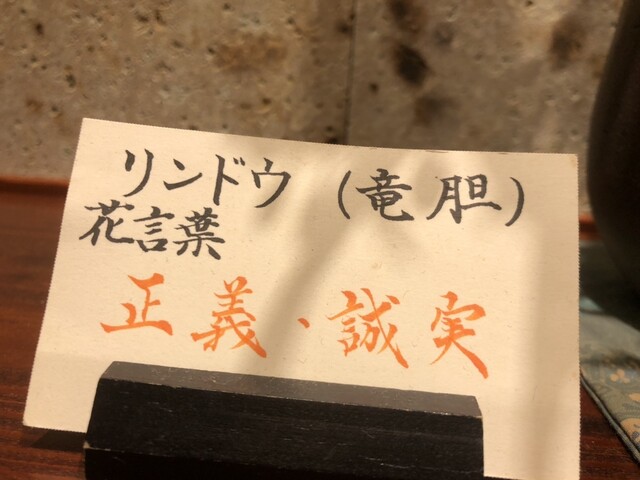 リンドウ(竜胆)
花言葉
正義・誠実